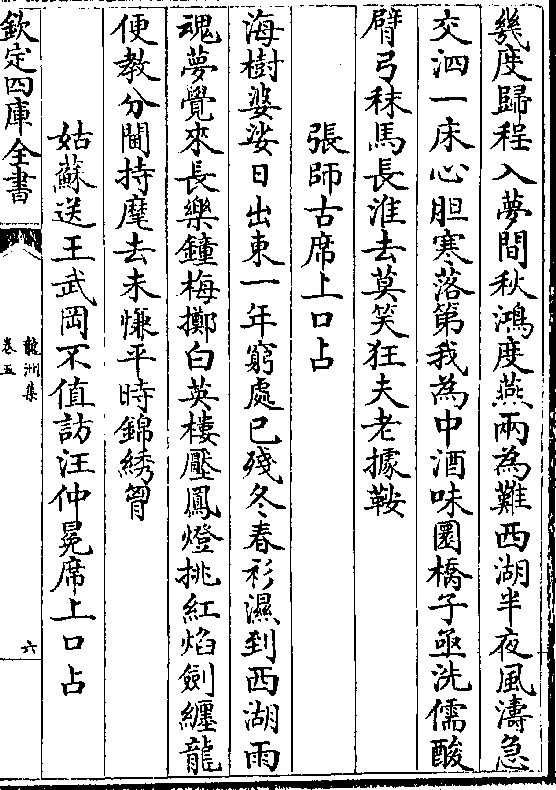 幾度歸程入夢間秋鴻度燕兩為難西湖半夜風濤急
交泗一床心胆寒落第我為中酒味圜橋子亟洗儒酸
臂弓秣馬長淮去莫笑狂夫老據鞍
張師古席上口占
海樹婆娑日出東一年窮處已殘冬春衫濕到西湖雨
魂夢覺來長樂鐘梅擲白英樓壓鳳燈挑紅焰劍纒龍
便教分閫持麾去未慊平時錦綉胷
姑蘇送王武岡不值訪汪仲冕席上口占
欽定四庫全書
龍洲集
卷五
六